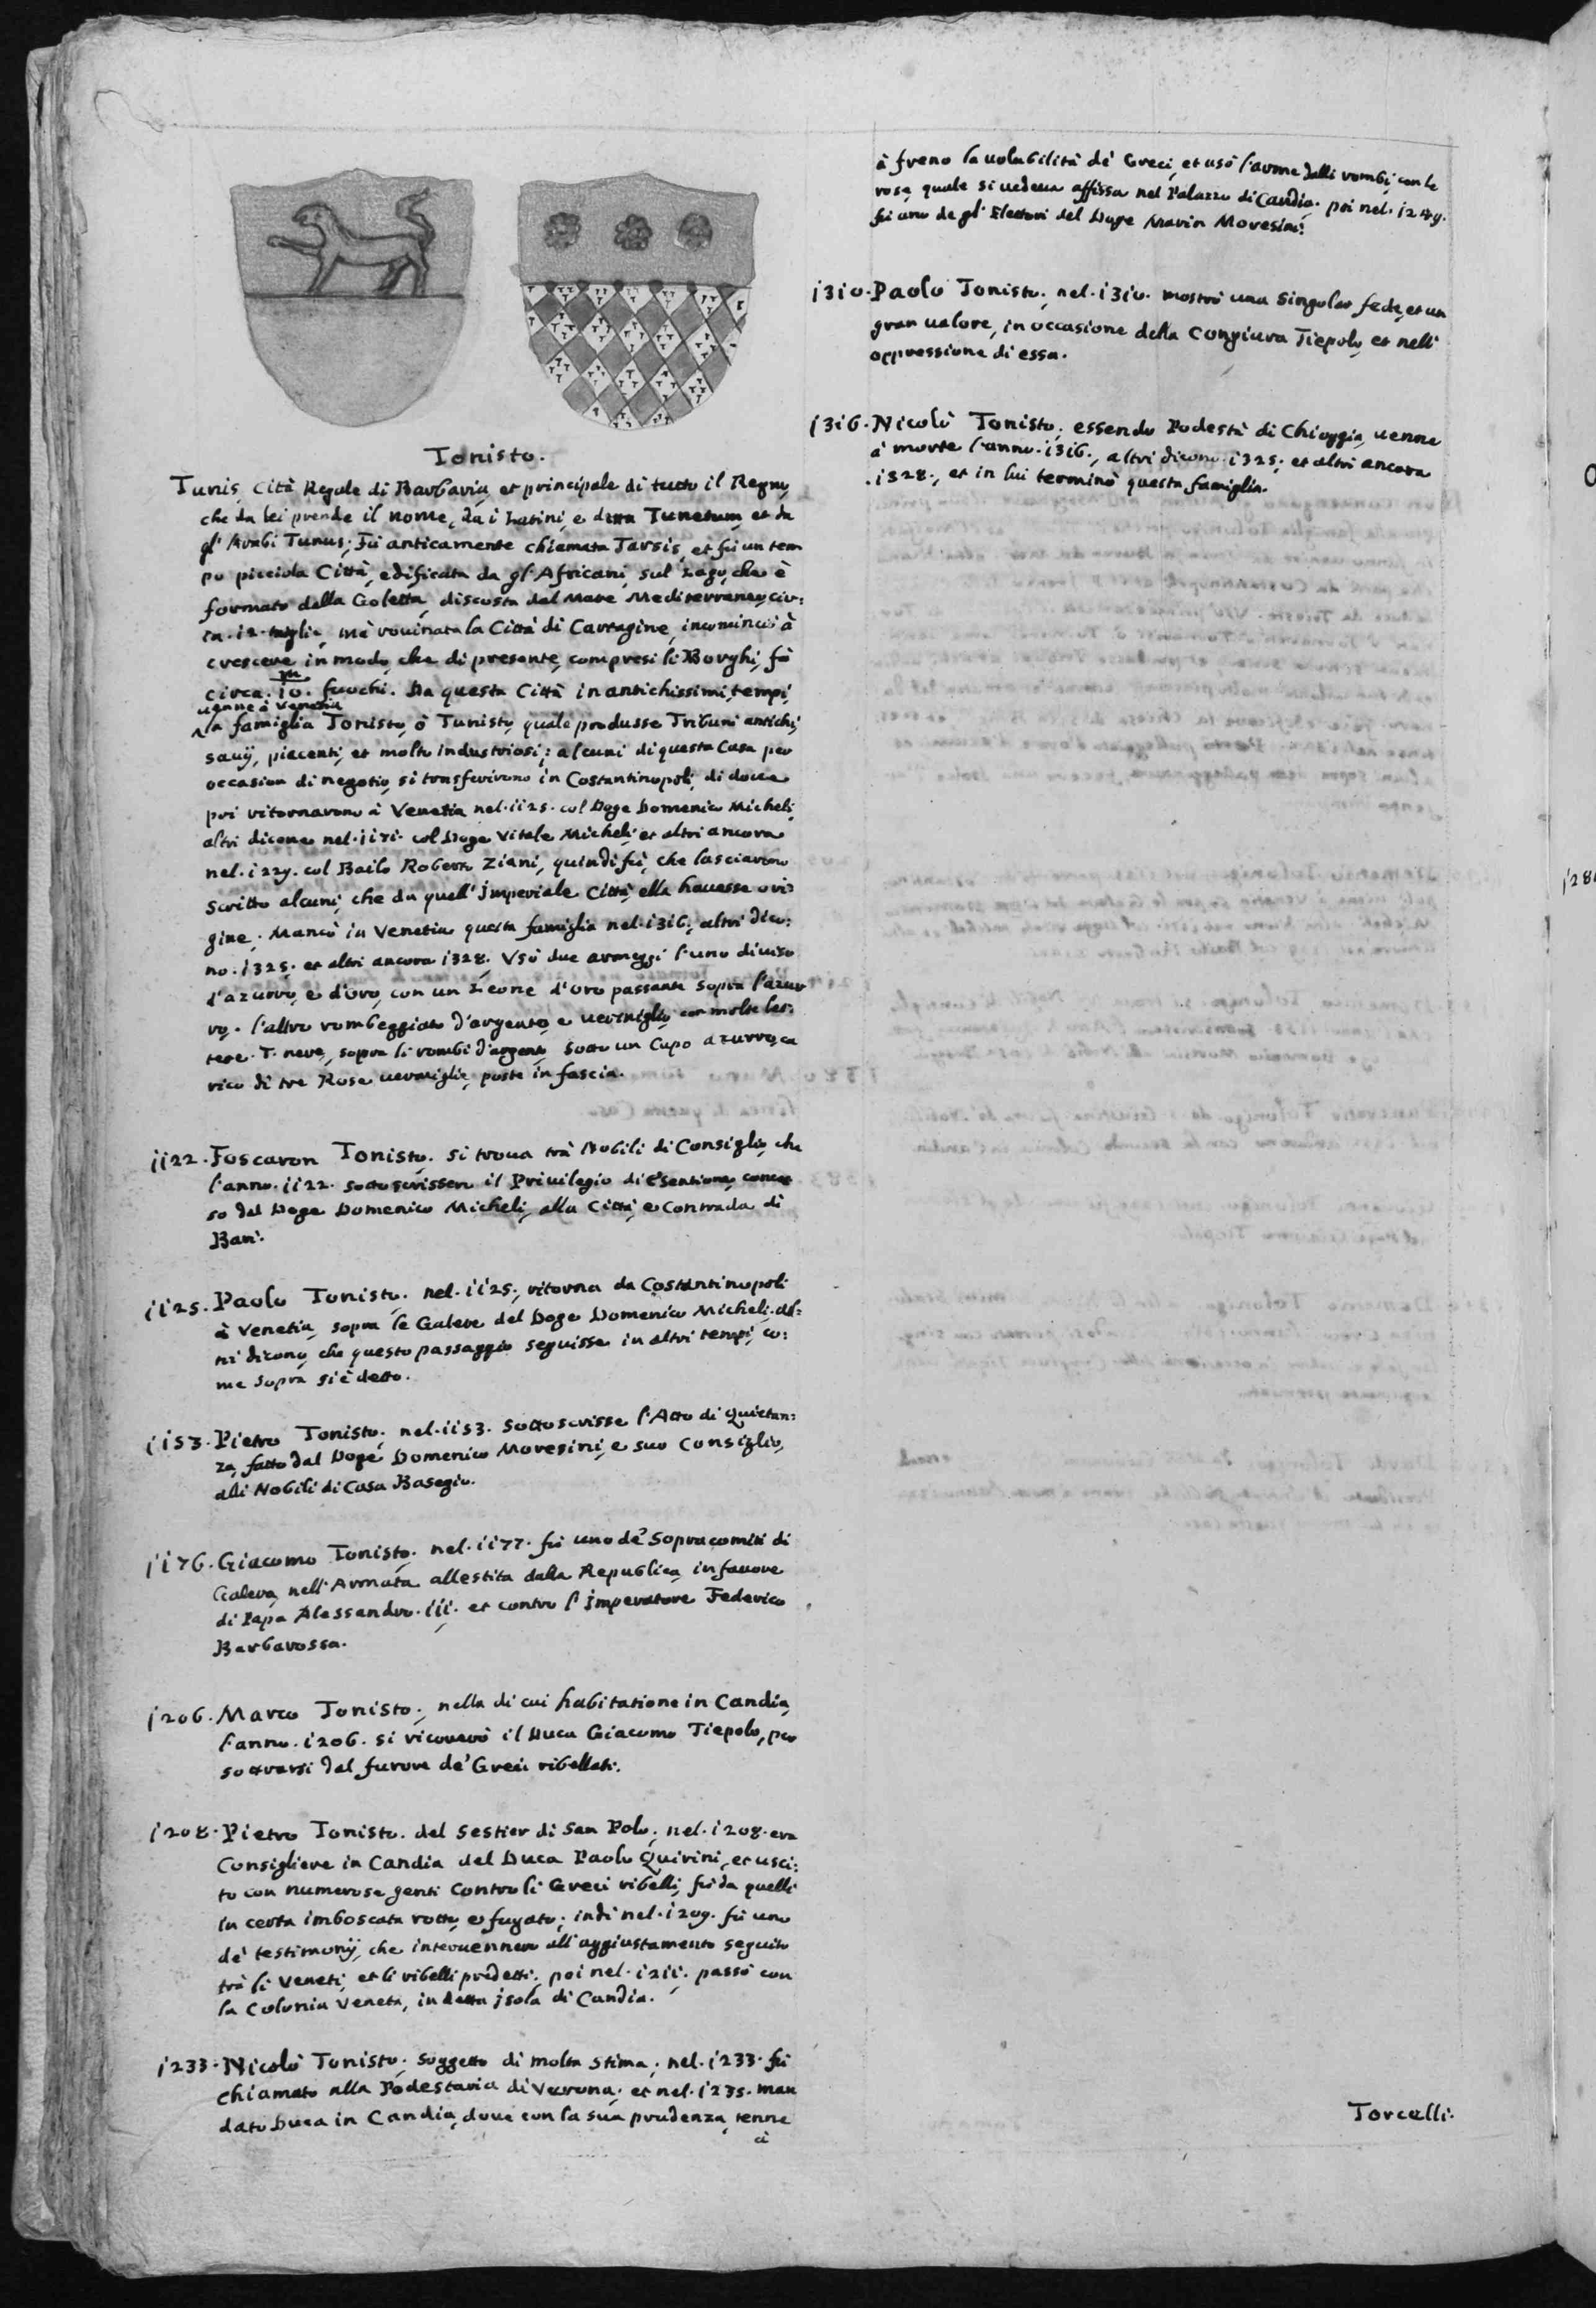 Tonisto.
Tunis, Cità Regale di Barbaria, et principale di tutto il Regno,
che da lei prende il nome, da i Latini, e detta Tunetum, et da
gl' Arabi Tunus; Fù anticamente chiamata Tarsis, et fù un tem
po picciola Città, edificata da gl' Africani, sul Lago, che è
formato dalla Goletta, discosta dal Mare Mediterraneo, cir:
ca .12. miglia, mà rouinata la Città di Cartagine, incominciò à
crescere in modo, che di presente, compresi li Borghi, fà
circa .10.m fuochi. Da questa Città in antichissimi tempi,
uenne à Venetia
la famiglia Tonisto, ò Tunisto, quale produsse Tribuni antichi,
sauij, piacenti, et molto industriosi; alcuni di questa Casa per
occasion di negotio, si transferirono in Costantinopoli, di doue
poi ritornarono à Venetia nel .1125. col Doge Domenico Micheli,
altri dicono nel .1171. col Doge Vitale Micheli, et altri ancora
nel .1229. col Bailo Roberto Ziani, quindi fù, che lasciarono
scritto alcuni, che da quell' Imperiale Città, ella hauesse ori:
gine. Mancò in Venetia questa famiglia nel .1316., altri dico:
no .1325. et altri ancora 1328. Vsò due armeggi l'uno diuiso
d'azurro, e d'oro, con un Leone d'oro passante sopra l'azur
ro. l'altro rombeggiato d'argento, e uermiglio, con molte let:
tere .T. nere, sopra li rombi d'argento, sotto un Capo azurro, ca
rico di tre Rose uermiglie, poste in fascia.
1122. Foscaron Tonisto. si troua trà Nobili di Consiglio, che
l'anno .1122. sottoscrissero il Priuilegio di Esentione, conces
so dal Doge Domenico Micheli, alla Città, e Contrada di
Bari.
1125. Paolo Tonisto. nel .1125., ritorna da Costantinopoli
à Venetia, sopra le Galere del Doge Domenico Micheli. al:
tri dicono, che questo passaggio seguisse in altri tempi, co:
me sopra si è detto.
1153. Pietro Tonisto. nel .1153. sottoscrisse l'Atto di Quietan:
za, fatto dal Doge Domenico Moresini, e suo Consiglio,
alli Nobili di Casa Basegio.
1176. Giacomo Tonisto. nel .1177. fù uno de' Sopracomiti di
Galera, nell'Armata allestita dalla Republica, in fauore
di Papa Alessandro .iii. et contro l'Imperatore Federico
Barbarossa.
1206. Marco Tonisto., nella di cui habitatione in Candia,
l'anno .1206. si ricourò il Duca Giacomo Tiepolo, per
sottrarsi dal furore de' Greci ribellati.
1208. Pietro Tonisto. del Sestier di San Polo, nel .1208. era
Consigliere in Candia del Duca Paolo Quirini, et usci:
to con numerose genti contro li Greci ribelli, fù da quelli
in certa imboscata rotto, e fugato; indi nel .1209. fù uno
de' testimonij, che interuennero all'aggiustamento seguito
trà li Veneti, et li ribelli predetti; poi nel .1211. passò con
la Colonia Veneta, in detta Isola di Candia.
1233. Nicolò Tonisto. soggetto di molta stima, nel .1233. fù
chiamato alla Podestaria di Verona; et nel .1235. man
dato Duca in Candia, doue con la sua prudenza, tenne
à
à freno la uolubilità de' Greci, et usò l'arme dalli rombi, con le
rose, quale si uedeua affissa nel Palazzo di Candia. poi nel .1249.
fù uno de gl' Elettori del Doge Marin Moresini.
1310. Paolo Tonisto. nel .1310. mostrò una singolar fede, et un
gran ualore, in occasione della Congiura Tiepolo, et nell'
oppressione di essa.
1316. Nicolò Tonisto. essendo Podestà di Chioggia, uenne
à morte l'anno .1316., altri dicono .1325. et altri ancora
.1328., et in lui terminò questa famiglia.
Torcelli.
128